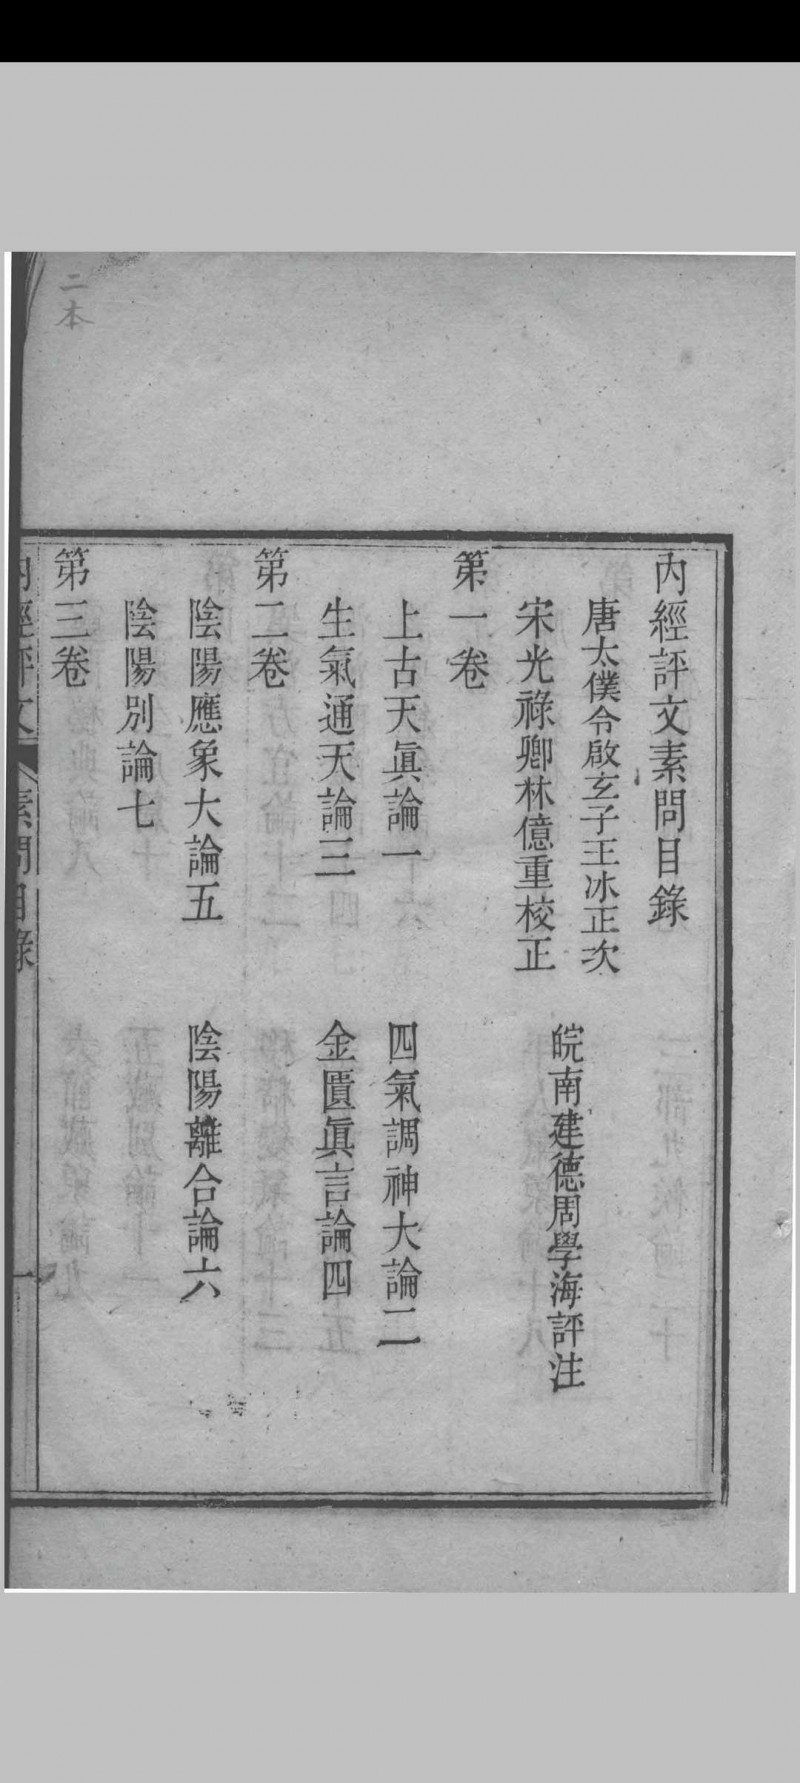 內經評文素問目錄
唐太僕令啟玄子王冰正次
宋光祿卿林億重校正
皖南建德周學海評注
第一卷
上古天眞論一
四氣調神大論二
生氣通天論三
金匱眞言論四
第二卷
陰陽應象大論五
陰陽離合論六
陰陽別論七
第三卷
內經評文
素問目錄
一
二本